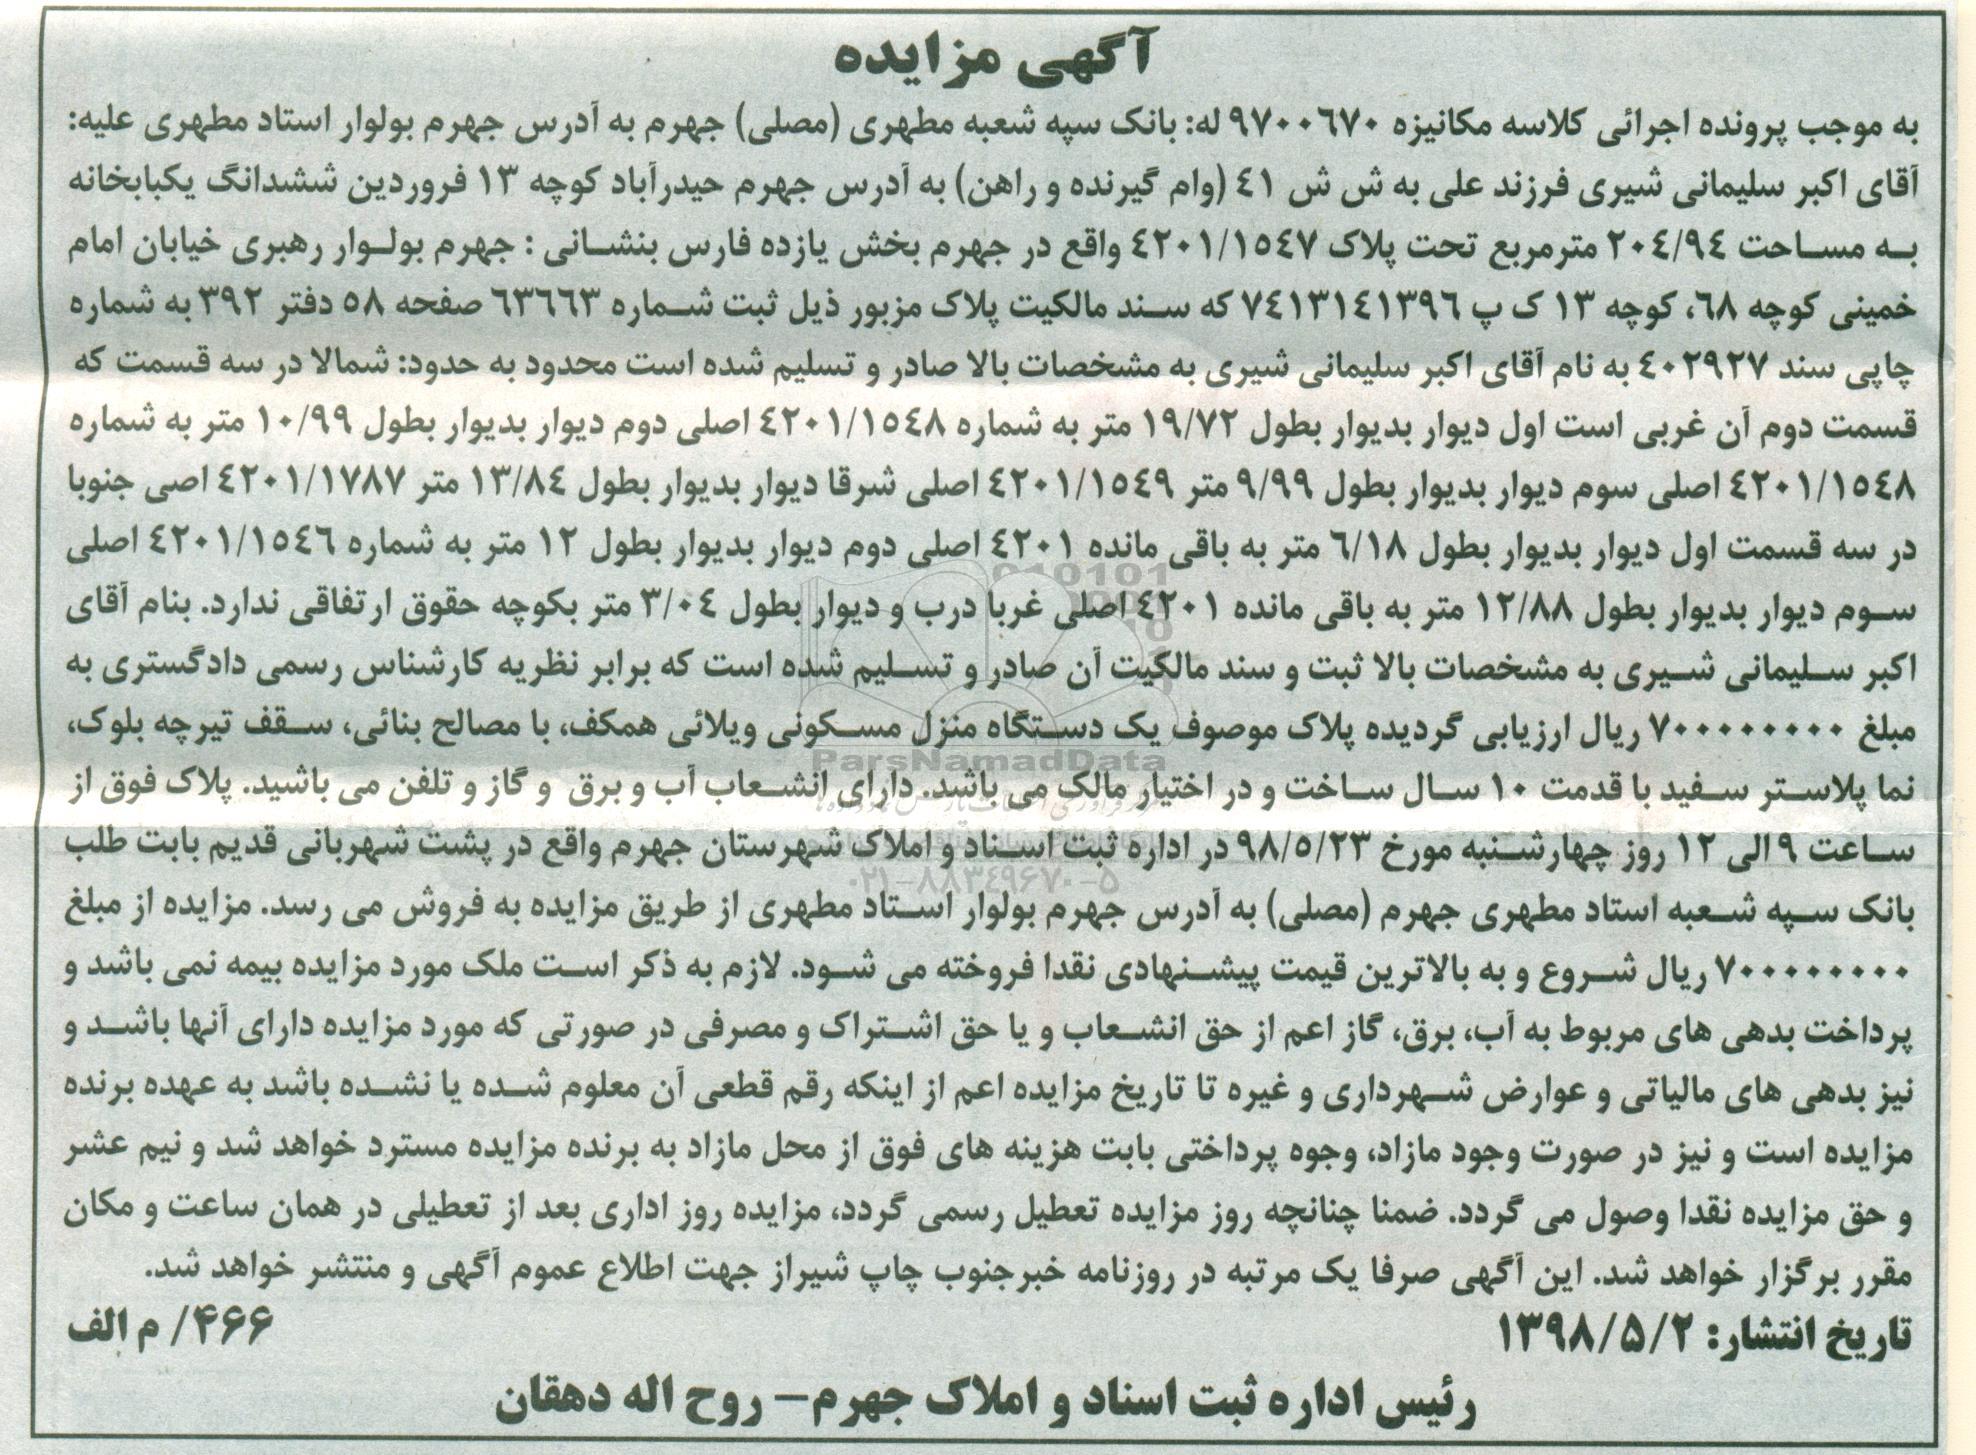 آگهی مزایده
به موجب پرونده اجرائی کلاسه مکانیزه ۹۷۰۰۶۷۰ له: بانک سپه شعبه مطهری (مصلی) جهرم به آدرس جهرم بولوار استاد مطهری علیه:
آقای اکبر سلیمانی شیری فرزند علی به ش ش ٤١ (وام گیرنده و راهن) به آدرس جهرم حیدرآباد کوچه ۱۳ فروردین ششدانگ یکبابخانه
به مساحت ۲۰٤/۹٤ مترمربع تحت پلاک ٤٢٠١/١٥٤٧ واقع در جهرم بخش یازده فارس بنشانی : جهرم بولوار رهبری خیابان امام
خمینی کوچه ۶۸، کوچه ۱۳ ک پ ٧٤١٣١٤١٣٩٦ که سند مالکیت پلاک مزبور ذیل ثبت شماره ٦٣٦٦٣ صفحه ٥٨ دفتر ۳۹۲ به شماره
چاپی سند ٤٠٢٩٢٧ به نام آقای اکبر سلیمانی شیری به مشخصات بالا صادر و تسلیم شده است محدود به حدود: شمالا در سه قسمت که
قسمت دوم آن غربی است اول دیوار بدیوار بطول ۱۹/۷۲ متر به شماره ٤٢٠١/١٥٤٨ اصلی دوم دیوار بدیوار بطول ۱۰/۹۹ متر به شماره
٤٢٠١/١٥٤٨ اصلی سوم دیوار بدیوار بطول ۹/۹۹ متر ٤٢٠١/١٥٤٩ اصلی شرقا دیوار بدیوار بطول ۱۳/۸٤ متر ٤٢٠١/١٧٨٧ اصی جنوبا
در سه قسمت اول دیوار بدیوار بطول ٦/١٨ متر به باقی مانده ٤٢٠١ اصلی دوم دیوار بدیوار بطول ۱۲ متر به شماره ٤٢٠١/١٥٤٦ اصلی
سوم دیوار بدیوار بطول ۱۲/۸۸ متر به باقی مانده ٤٢٠١ اصلی غربا درب و دیوار بطول ۳/۰٤ متر بکوچه حقوق ارتفاقی ندارد. بنام آقای
اکبر سلیمانی شیری به مشخصات بالا ثبت و سند مالکیت آن صادر و تسلیم شده است که برابر نظریه کارشناس رسمی دادگستری به
مبلغ ۷۰۰۰۰۰۰۰۰۰ ریال ارزیابی گردیده پلاک موصوف یک دستگاه منزل مسکونی ویلائی همکف، با مصالح بنائی، سقف تیرچه بلوک،
ParsNamadData
نما پلاستر سفید با قدمت ۱۰ سال ساخت و در اختیار مالک می باشد. دارای انشعاب آب و برق و گاز و تلفن می باشید. پلاک فوق از
ساعت ۹ الی ۱۲ روز چهارشنبه مورخ ۹۸/۵/۲۳ در اداره ثبت اسناد و املاک شهرستان جهرم واقع در پشت شهربانی قدیم بابت طلب
۰۲۱-۸۸۳۴۹۶۷۰-۵
بانک سپه شعبه استاد مطهری جهرم (مصلی) به آدرس جهرم بولوار استاد مطهری از طریق مزایده به فروش می رسد. مزایده از مبلغ
۷۰۰۰۰۰۰۰۰۰ ریال شروع و به بالاترین قیمت پیشنهادی نقدا فروخته می شود. لازم به ذکر است ملک مورد مزایده بیمه نمی باشد و
پرداخت بدهی های مربوط به آب، برق، گاز اعم از حق انشعاب و یا حق اشتراک و مصرفی در صورتی که مورد مزایده دارای آنها باشد و
نیز بدهی های مالیاتی و عوارض شهرداری و غیره تا تاریخ مزایده اعم از اینکه رقم قطعی آن معلوم شده یا نشده باشد به عهده برنده
مزایده است و نیز در صورت وجود مازاد، وجوه پرداختی بابت هزینه های فوق از محل مازاد به برنده مزایده مسترد خواهد شد و نیم عشر
و حق مزایده نقدا وصول می گردد. ضمنا چنانچه روز مزایده تعطیل رسمی گردد، مزایده روز اداری بعد از تعطیلی در همان ساعت و مکان
مقرر برگزار خواهد شد. این آگهی صرفا یک مرتبه در روزنامه خبرجنوب چاپ شیراز جهت اطلاع عموم آگهی و منتشر خواهد شد.
تاریخ انتشار: ۱۳۹۸/۵/۲
۴۶۶/ م الف
رئیس اداره ثبت اسناد و املاک جهرم- روح اله دهقان